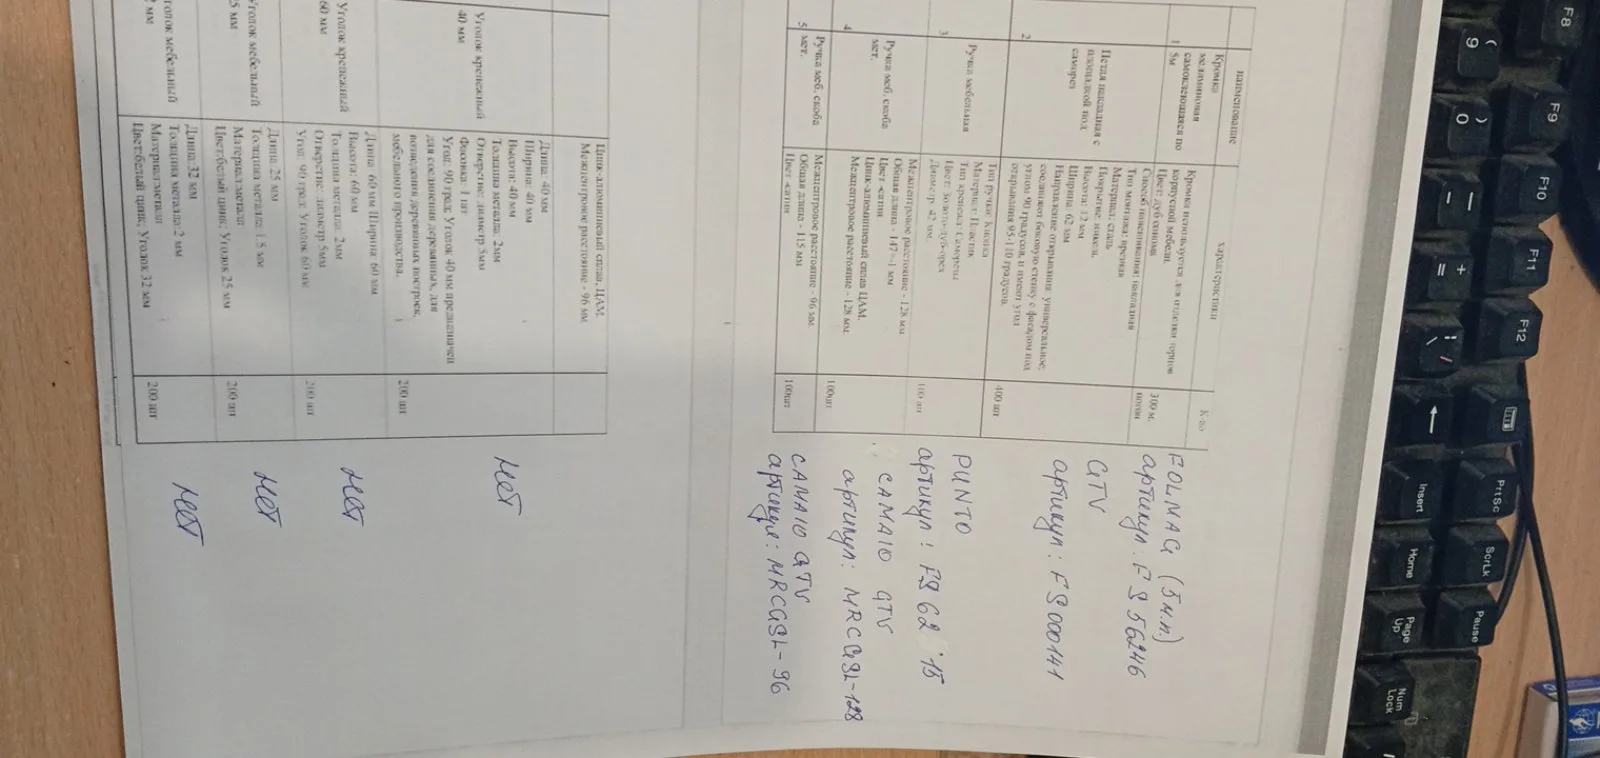 наименование
характеристики
К-во
1
Кромка
меламиновая
самоклеющаяся по
5м
Кромка используется для отделки торцов
корпусной мебели.
Цвет: дуб сонома
300 м.
погон
FOLMAG (5 м.п.)
артикул: FS 56246
2
Петля накладная с
площадкой под
саморез
Способ применения: накладная
Тип монтажа: врезная
Материал: сталь
Покрытие: никель
Высота: 12 мм
Ширина: 62 мм
Направление открывания: универсальное;
соединяют боковую стенку с фасадом под
углом 90 градусов, и имеют угол
открывания 95-110 градусов.
400 шт
GTV
артикул: FS000141
3
Ручка мебельная
Тип ручки: Кнопка
Материал: Пластик
Тип крепежа: Саморезы
Диаметр: 42 мм.
100 шт
PUNTO
артикул: FS 62 15
4
Ручка меб. скоба
мет.
Межцентровое расстояние - 128 мм
Общая длина - 147+-1 мм
Цвет -сатин
Цинк-алюминиевый сплав ЦАМ.
Межцентровое расстояние - 128 мм.
100шт
CAMAIO GTV
артикул: MRCGSL-128
5
Ручка меб. скоба
мет.
Межцентровое расстояние - 96 мм.
Общая длина - 115 мм
Цвет -сатин
100шт
CAMAIO GTV
артикул: MRCGSL-96
Цинк-алюминиевый сплав, ЦАМ.
Межцентровое расстояние - 96 мм
Уголок крепежный
40 мм
Длина: 40 мм
Ширина: 40 мм
Высота: 40 мм
Толщина металла: 2мм
Отверстие: диаметр 5мм
Фасовка: 1 шт
Угол: 90 град; Уголок 40 мм предназначен
для соединения деревянных, для
возведения деревянных построек,
мебельного производства.
200 шт
нет
Уголок крепежный
60 мм
Длина: 60 мм Ширина: 60 мм
Высота: 60 мм
Толщина металла: 2мм
Отверстие: диаметр 5мм
Угол: 90 град; Уголок 60 мм
200 шт
нет
Уголок мебельный
25 мм
Длина 25 мм
Толщина металла: 1.5 мм
Материал:металл
Цвет:белый цинк; Уголок 25 мм
200 шт
нет
уголок мебельный
2 мм
Длина: 32 мм
Толщина металла:2 мм
Материал:металл
Цвет:белый цинк; Уголок 32 мм
200 шт
нет
F8
F9
F10
F11
F12
PrtSc
ScrLk
Pause
Insert
Home
Page
Up
Num
Lock
( 9
) 0
_ -
+ =